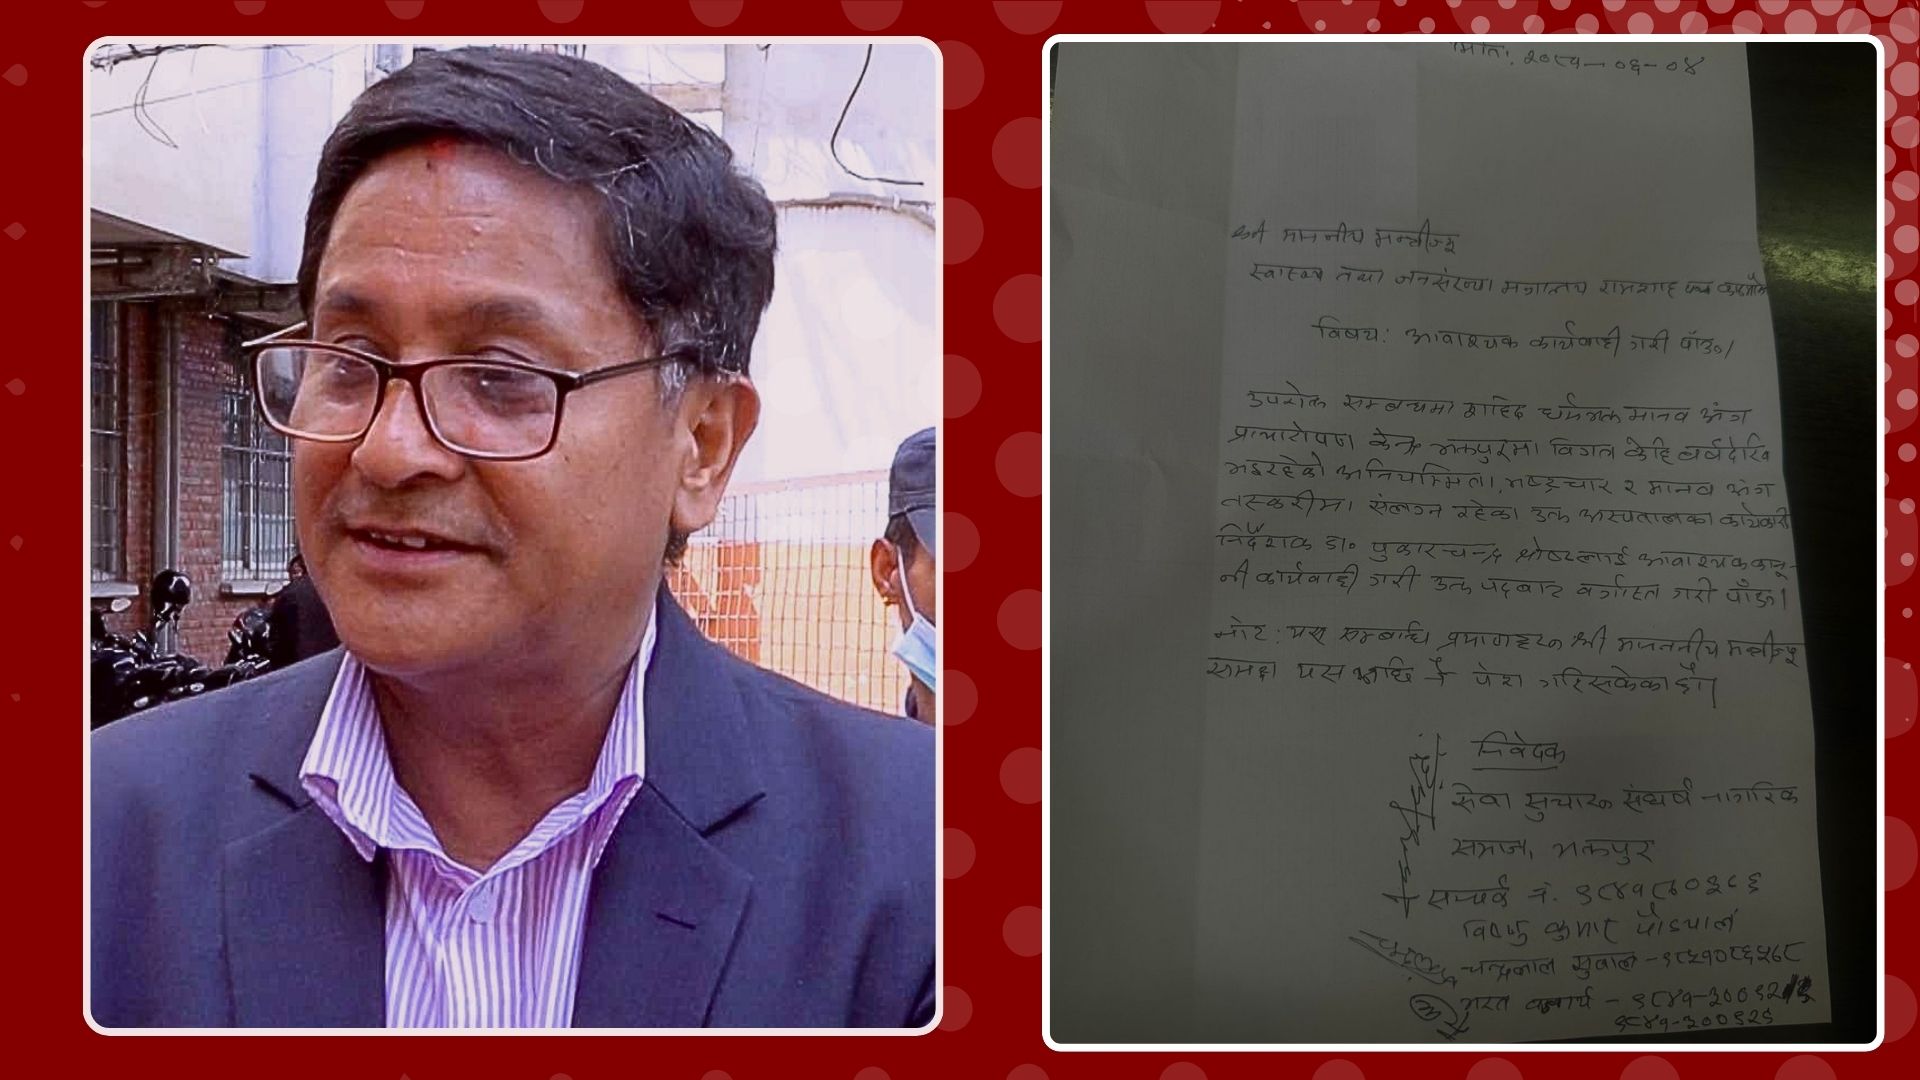 मिति: २०८१-०६-०४
श्री माननीय मन्त्रीज्यू
स्वास्थ्य तथा जनसंख्या मन्त्रालय रामशाह पथ काठमाडौं
विषय: आवाश्यक कार्यवाही गरी पाँउ।
उपरोक्त सम्बन्धमा शहिद धर्मभक्त मानव अंग
प्रत्यारोपण केन्द्र भक्तपुरमा विगत केहि वर्षदेखि
भइरहेको अनियमितता, भष्ट्रचार र मानव अंग
तस्करीमा संलग्न रहेका उक्त अस्पतालका कार्यकारी
निर्देशक डा॰ पुकारचन्द्र श्रेष्ठलाई आवाश्यक कानू-
नी कार्यवाही गरी उक्त पदबाट बर्खास्त गरी पाँउ।
नोट: यस सम्बन्धि प्रमाणहरू श्री माननीय मन्त्रीज्यू
समक्ष यस अघि नै पेश गरिसकेका छौं।
निवेदक
सेवा सुचारू संघर्ष नागरिक
समाज, भक्तपुर
सम्पर्क नं.
विष्णु कुमार पौडयाल
चन्द्रलाल सुवाल -
भरत बज्राचार्य -